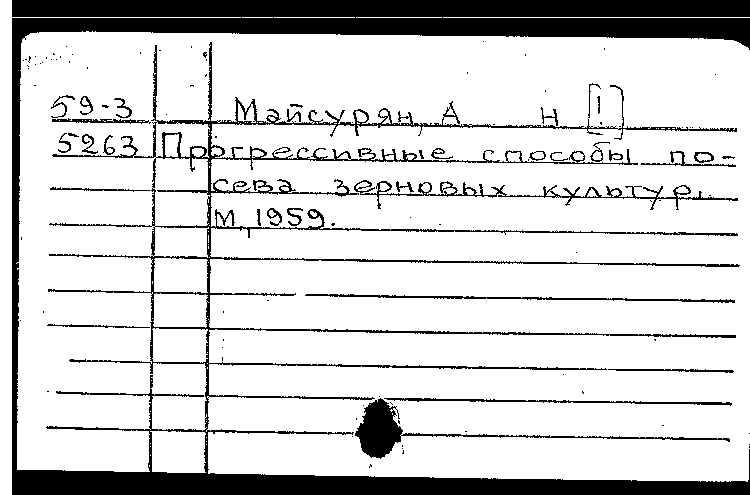 59-3 Майсурян, А Н [!]
5263 Прогрессивные способы по-
сева зерновых культур.
М., 1959.